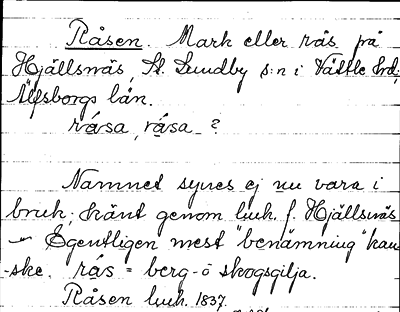 Råsen. Mark eller rås på
Hjällsnäs, St. Lundby s:n i Vättle hrd,
Älfsborgs län.
råsa, råsa ?
Namnet synes ej nu vara i
bruk; känt genom luk. f. Hjällsnäs
– Egentligen mest "benämning" kan-
-ske. rås = berg- o skogsgilja.
Råsen luk. 1837.